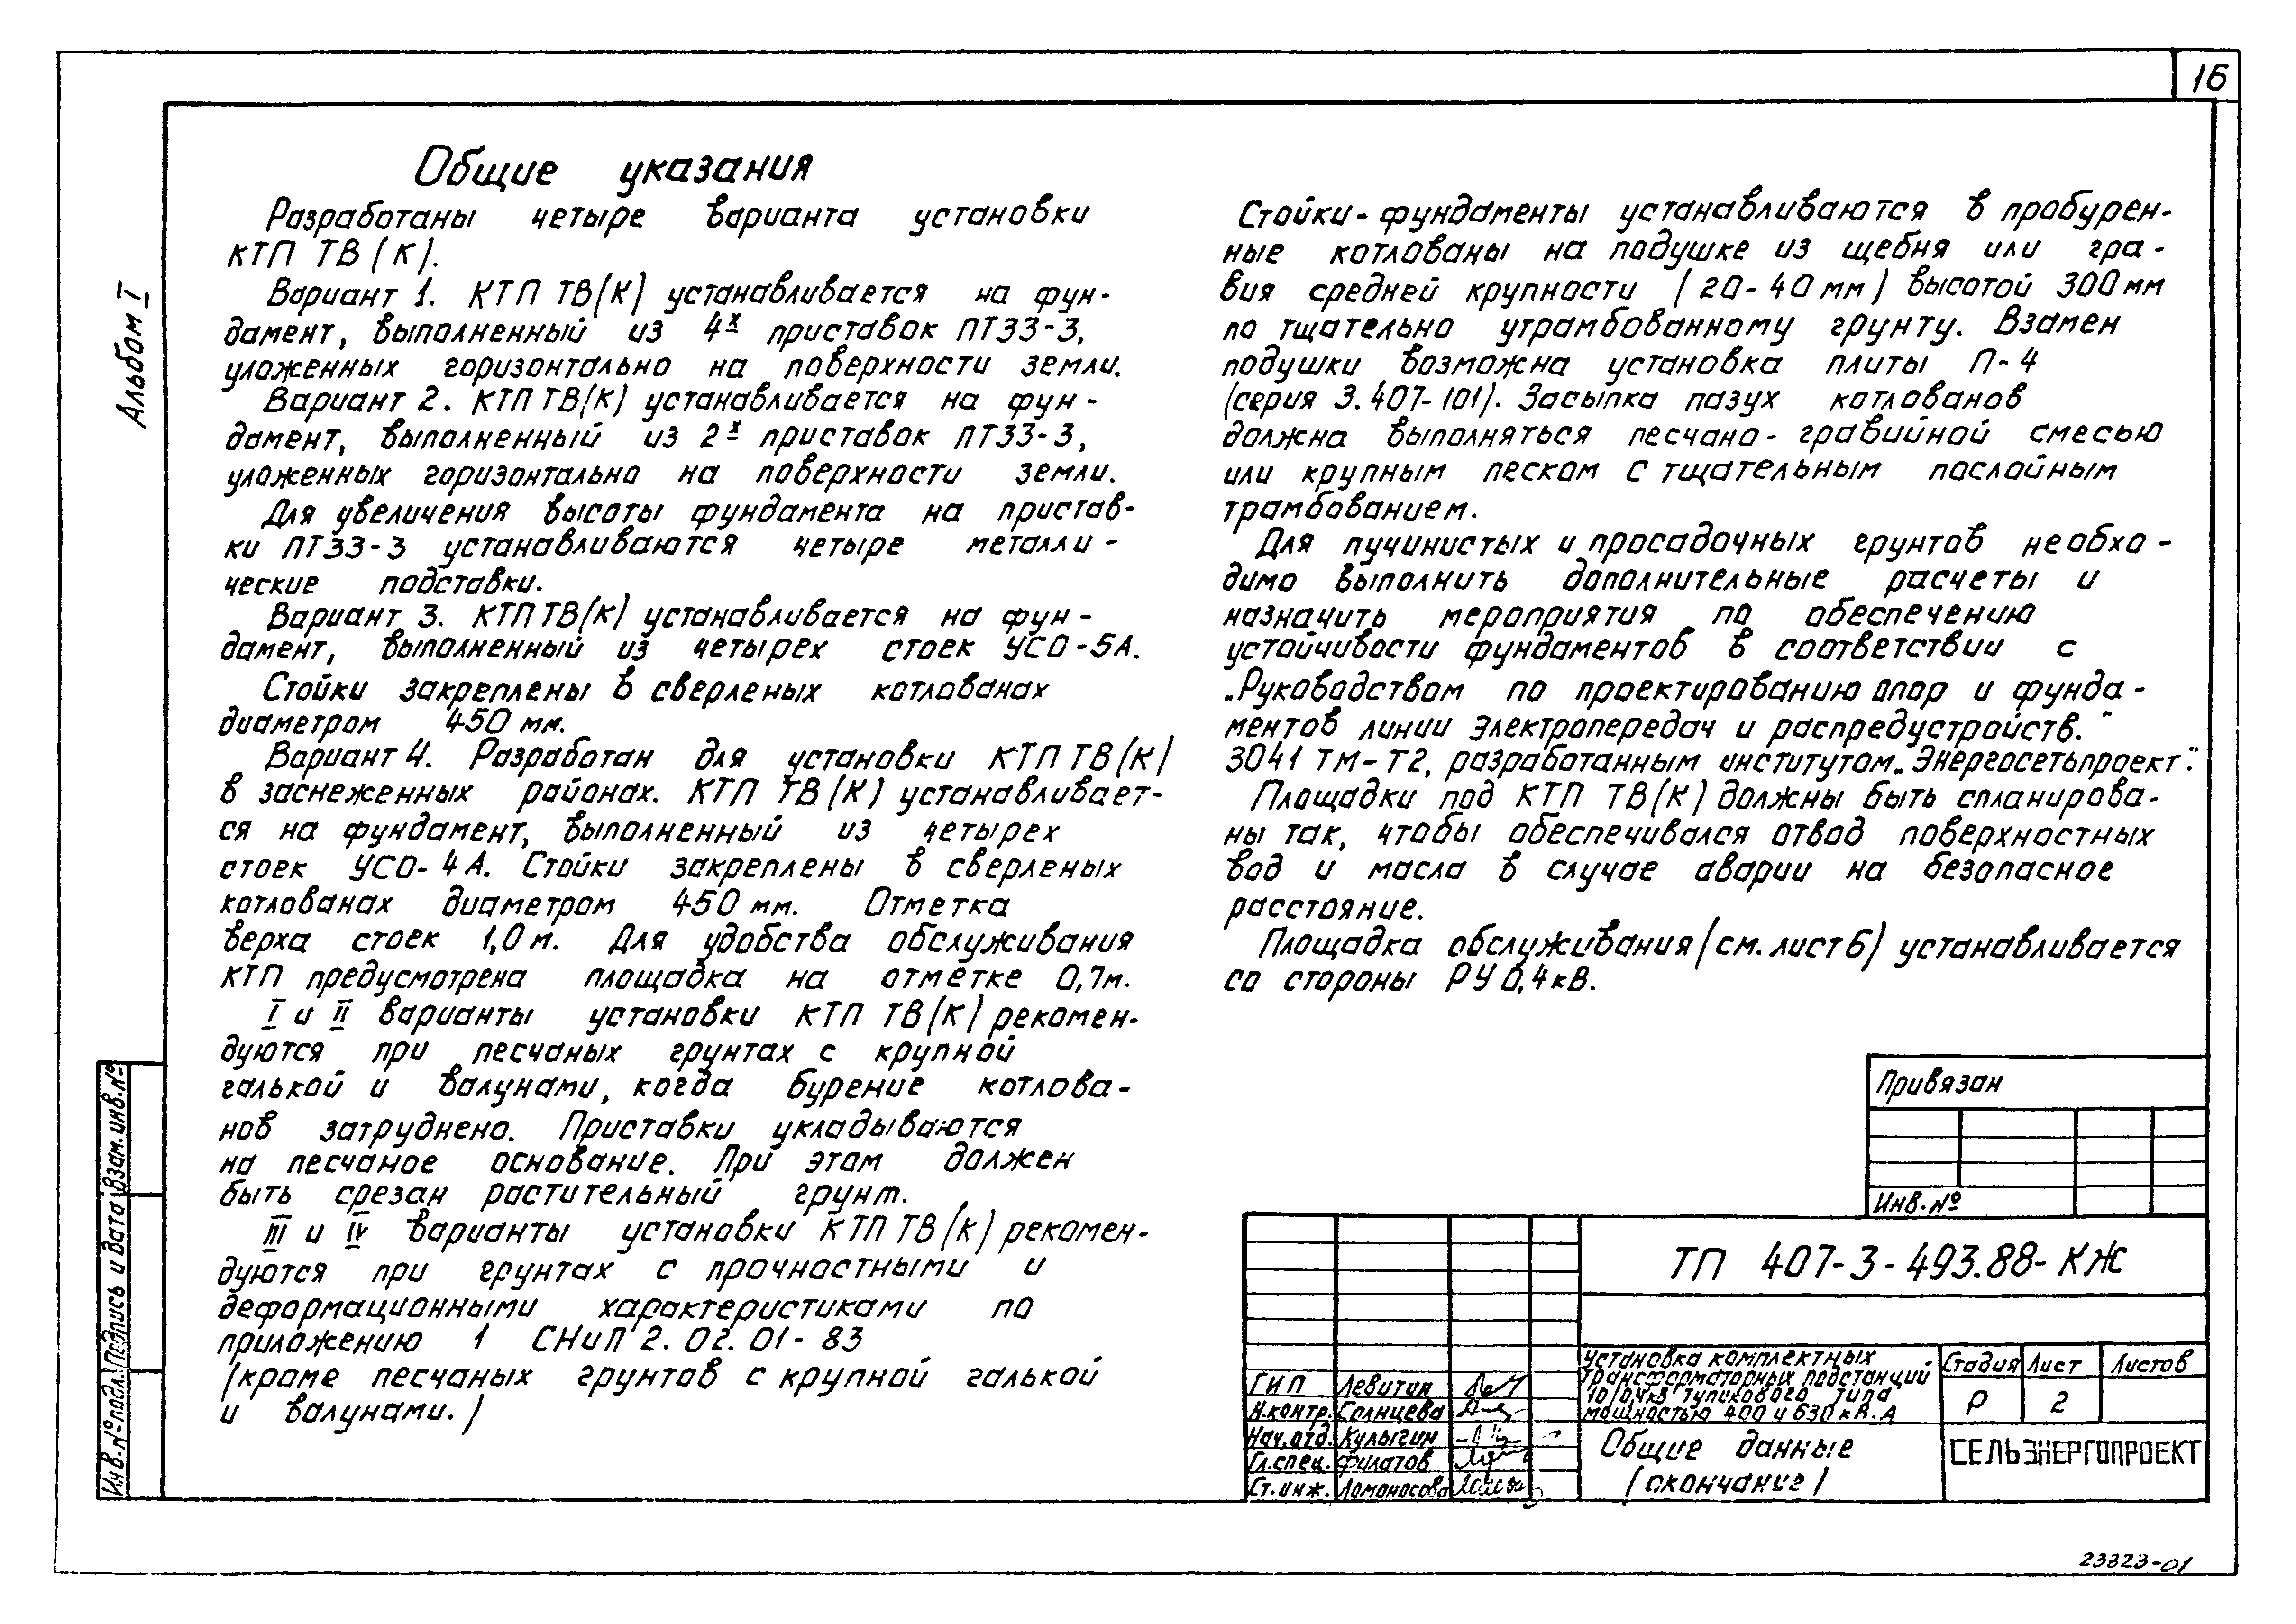 16
Альбом I
Общие указания
Разработаны четыре варианта установки
КТП ТВ(К).
Вариант 1. КТП ТВ(К) устанавливается на фун-
дамент, выполненный из 4х приставок ПТ33-3,
уложенных горизонтально на поверхности земли.
Вариант 2. КТП ТВ(К) устанавливается на фун-
дамент, выполненный из 2х приставок ПТ33-3,
уложенных горизонтально на поверхности земли.
Для увеличения высоты фундамента на пристав-
ки ПТ33-3 устанавливаются четыре металли-
ческие подставки.
Вариант 3. КТП ТВ(К) устанавливается на фун-
дамент, выполненный из четырех стоек УСО-5А.
Стойки закреплены в сверленых котлованах
диаметром 450 мм.
Вариант 4. Разработан для установки КТП ТВ(К)
в заснеженных районах. КТП ТВ(К) устанавливает-
ся на фундамент, выполненный из четырех
стоек УСО-4А. Стойки закреплены в сверленых
котлованах диаметром 450 мм. Отметка
верха стоек 1,0 м. Для удобства обслуживания
КТП предусмотрена площадка на отметке 0,7м.
I и II варианты установки КТП ТВ(К) рекомен-
дуются при песчаных грунтах с крупной
галькой и валунами, когда бурение котлова-
нов затруднено. Приставки укладываются
на песчаное основание. При этом должен
быть срезан растительный грунт.
III и IV варианты установки КТП ТВ(К) рекомен-
дуются при грунтах с прочностными и
деформационными характеристиками по
приложению 1 СНиП 2.02.01-83
(кроме песчаных грунтов с крупной галькой
и валунами.)
Стойки-фундаменты устанавливаются в пробурен-
ные котлованы на подушке из щебня или гра-
вия средней крупности (20-40 мм) высотой 300 мм
по тщательно утрамбованному грунту. Взамен
подушки возможна установка плиты П-4
(серия 3.407-101). Засыпка пазух котлованов
должна выполняться песчано-гравийной смесью
или крупным песком с тщательным послойным
трамбованием.
Для пучинистых и просадочных грунтов необхо-
димо выполнить дополнительные расчеты и
назначить мероприятия по обеспечению
устойчивости фундаментов в соответствии с
„Руководством по проектированию опор и фунда-
ментов линии электропередач и распредустройств."
3041 ТМ-Т2, разработанным институтом „Энергосетьпроект".
Площадки под КТП ТВ(К) должны быть спланирова-
ны так, чтобы обеспечивался отвод поверхностных
вод и масла в случае аварии на безопасное
расстояние.
Площадка обслуживания (см. лист 6) устанавливается
со стороны РУ 0,4 кВ.
Привязан
Инв. №
ТП 407-3-493.88-КЖ
Установка комплектных
трансформаторных подстанций
10/0,4кВ тупикового типа
мощностью 400 и 630 кВ.А
Стадия Лист Листов
Р 2
Общие данные
(окончание)
СЕЛЬЭНЕРГОПРОЕКТ
ГИП Левитин
Н.контр. Солнцева
Нач.отд. Кулыгин
Гл.спец. Филатов
Ст.инж. Ломоносова
Инв.№подл. Подпись и дата Взам.инв.№
23323-01